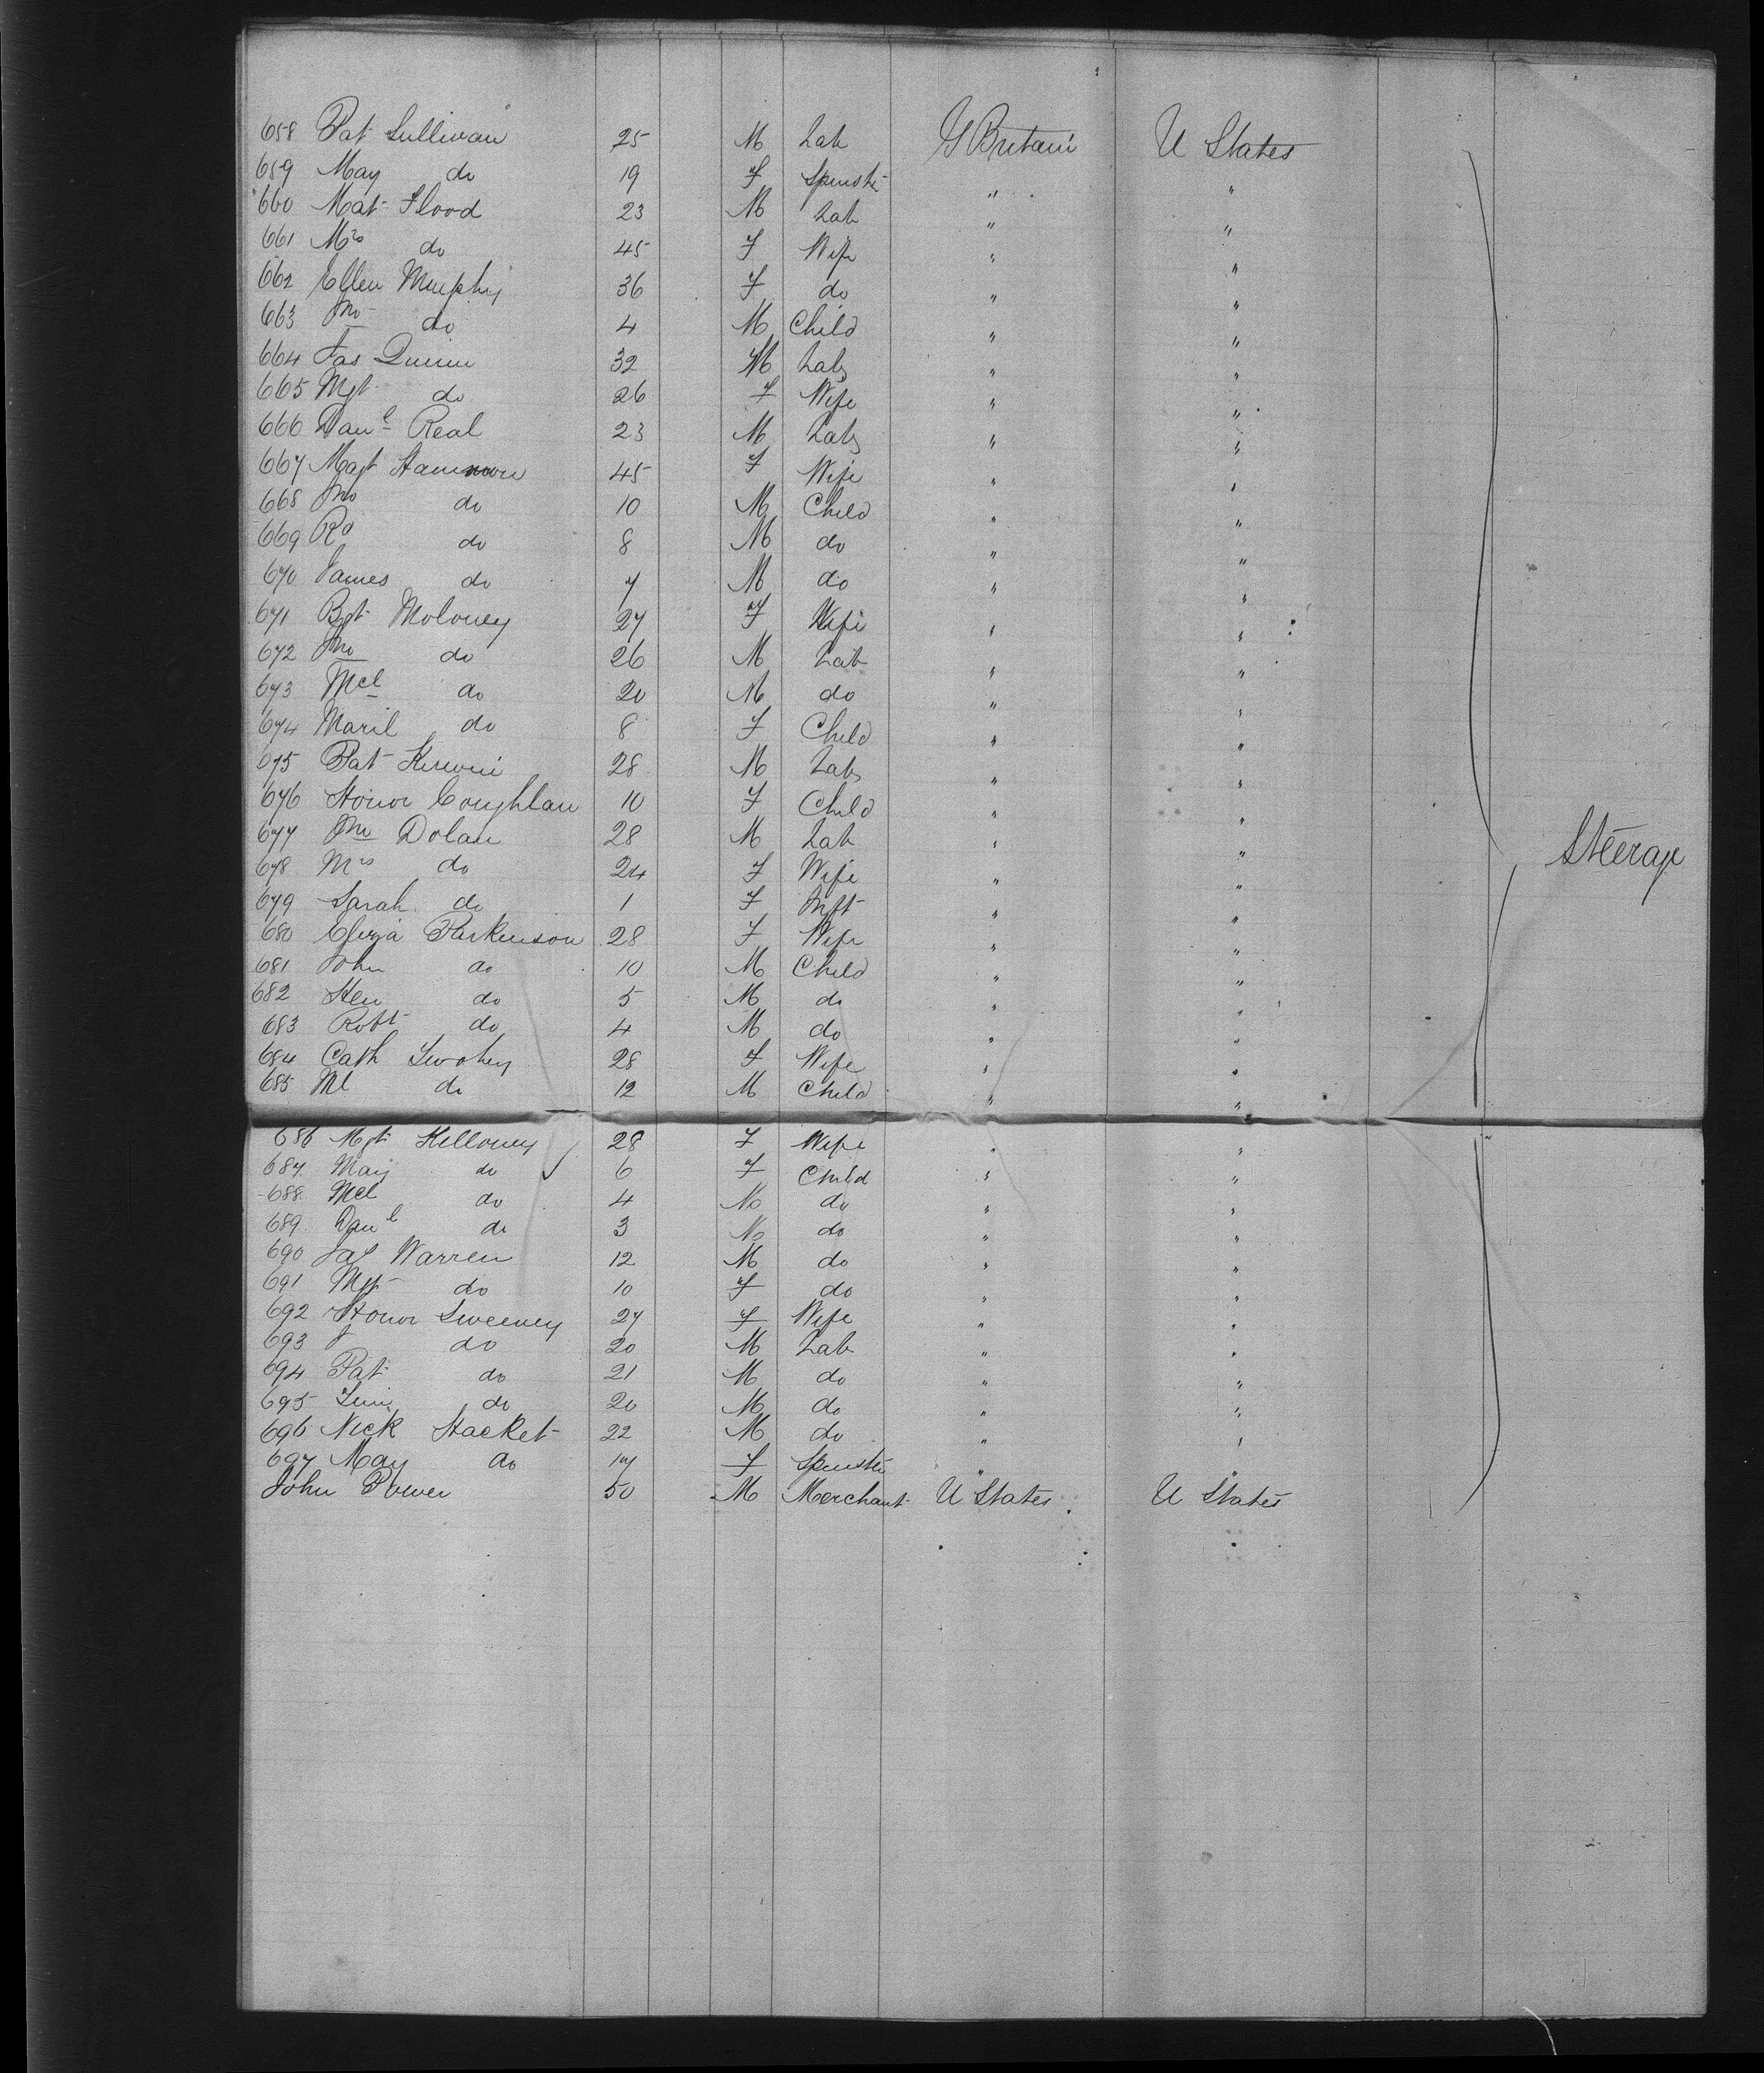 658 Pat Sullivan 25 M Lab G Britain U States
659 May do 19 F Spinstr " "
660 Mat Flood 23 M Lab " "
661 Mrs do 45 F Wife " "
662 Ellen Murphy 36 F do " "
663 Jno do 4 M Child " "
664 Jas Quinn 32 M Lab " "
665 Mgt do 26 F Wife " "
666 Danl Real 23 M Lab " "
667 Magt 45 F Wife " "
668 Jno do 10 M Child " "
669 Rd do 8 M do " "
670 James do 7 M do " "
671 Bgt Moloney 27 F Wife " "
672 Jno do 26 M Lab " "
673 Mcl do 20 M do " "
674 do 8 F Child " "
675 Pat Kerwin 28 M Lab " "
676 Honor Coughlan 10 F Child " "
677 Jno Dolan 28 M Lab " "
678 Mrs do 24 F Wife " "
Steerage
679 Sarah do 1 F Inft " "
680 Eliza Parkinson 28 F Wife " "
681 John do 10 M Child " "
682 Hen do 5 M do " "
683 Robt do 4 M do " "
684 Cath Twohey 28 F Wife " "
685 Ml do 12 M Child " "
686 Mgt Kelloney 28 F Wife " "
687 May do 6 F Child " "
688 Mcl do 4 M do " "
689 Danl do 3 M do " "
690 Jas Warren 12 M do " "
691 Mgt do 10 F do " "
692 Honor Sweeney 27 F Wife " "
693 J do 20 M Lab " "
694 Pat do 21 M do " "
695 do 20 M do " "
696 Nick Hacket 22 M do " "
697 May do 17 F Spinstr " "
John Power 50 M Merchant U States U States